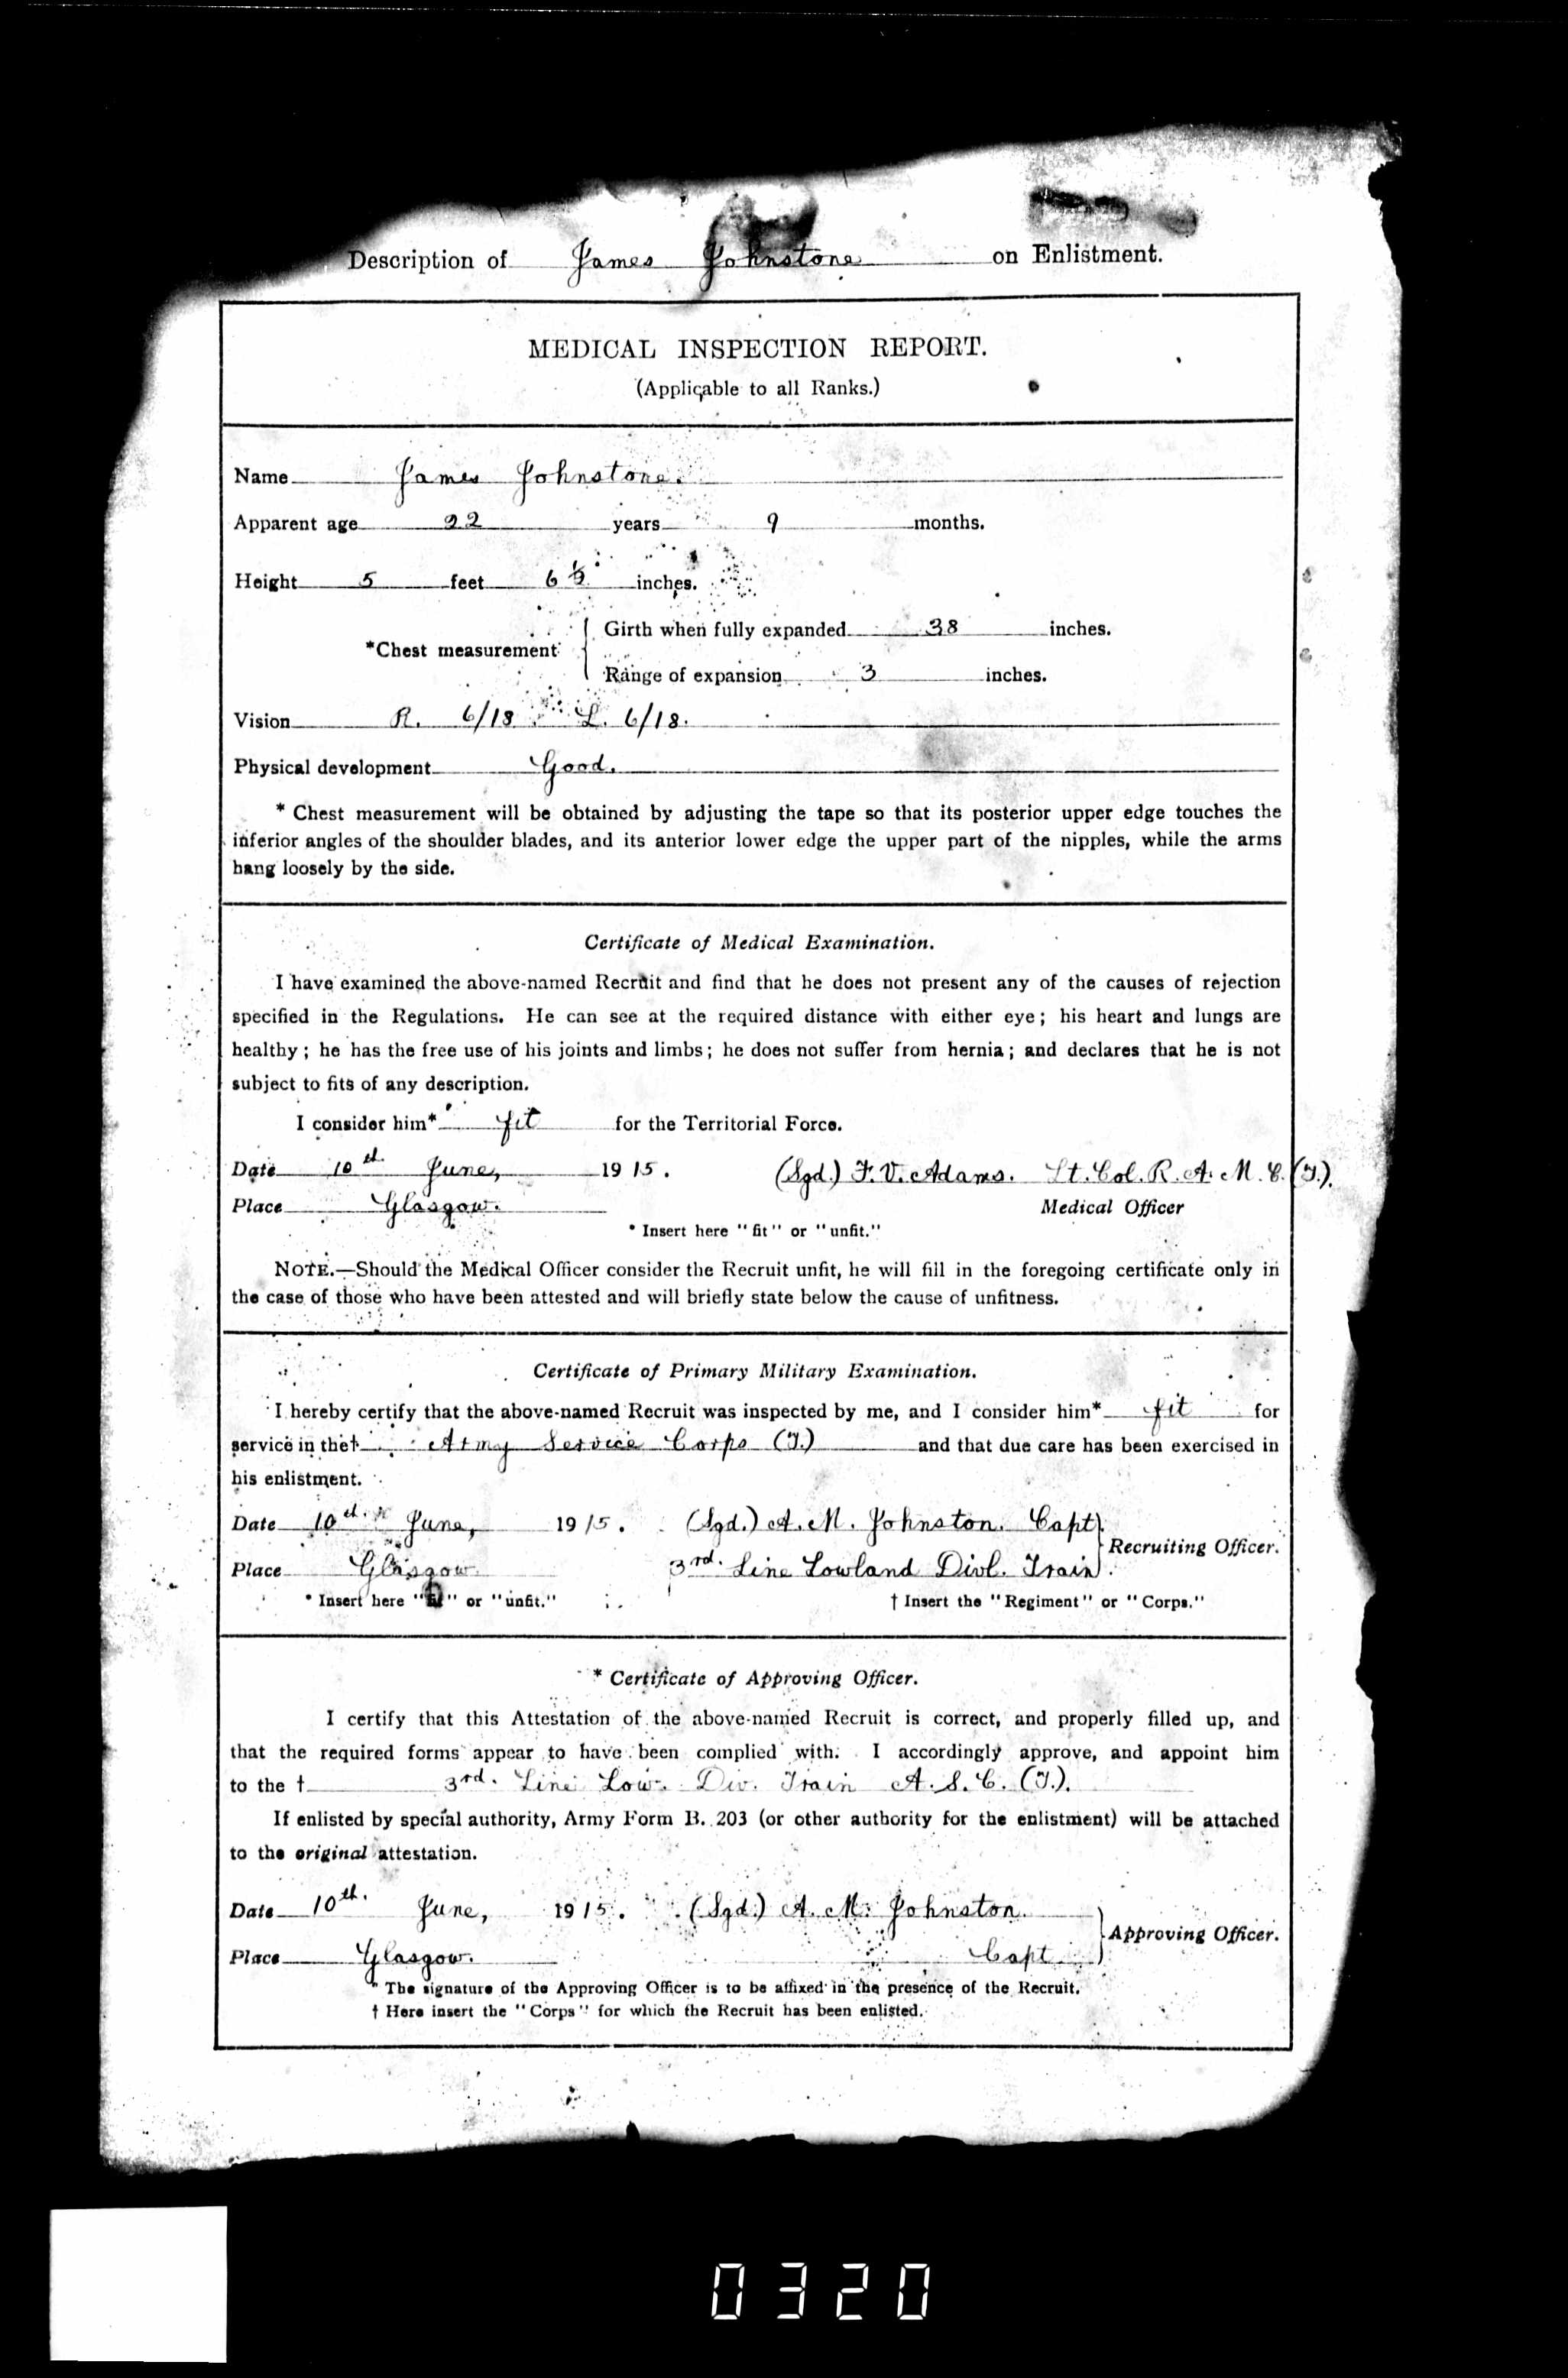 Description of James Johnstone on Enlistment.
MEDICAL INSPECTION REPORT.
(Applicable to all Ranks.)
Name James Johnstone.
Apparent age 22 years 9 months.
Height 5 feet 6 ½ inches.
*Chest measurement { Girth when fully expanded 38 inches.
Range of expansion 3 inches.
Vision R. 6/18 L. 6/18.
Physical development Good.
* Chest measurement will be obtained by adjusting the tape so that its posterior upper edge touches the
inferior angles of the shoulder blades, and its anterior lower edge the upper part of the nipples, while the arms
hang loosely by the side.
Certificate of Medical Examination.
I have examined the above-named Recruit and find that he does not present any of the causes of rejection
specified in the Regulations. He can see at the required distance with either eye; his heart and lungs are
healthy; he has the free use of his joints and limbs; he does not suffer from hernia; and declares that he is not
subject to fits of any description.
I consider him* fit for the Territorial Force.
Date 10th June, 1915. (Sgd.) F. V. Adams. Lt. Col. R. A. M. C. (T.).
Place Glasgow. Medical Officer
* Insert here "fit" or "unfit."
NOTE.—Should the Medical Officer consider the Recruit unfit, he will fill in the foregoing certificate only in
the case of those who have been attested and will briefly state below the cause of unfitness.
Certificate of Primary Military Examination.
I hereby certify that the above-named Recruit was inspected by me, and I consider him* fit for
service in the† Army Service Corps (T.) and that due care has been exercised in
his enlistment.
Date 10th June, 1915. (Sgd.) A. M. Johnston. Capt } Recruiting Officer.
Place Glasgow 3rd. Line Lowland Divl. Train.
* Insert here "fit" or "unfit." † Insert the "Regiment" or "Corps."
* Certificate of Approving Officer.
I certify that this Attestation of the above-named Recruit is correct, and properly filled up, and
that the required forms appear to have been complied with. I accordingly approve, and appoint him
to the † 3rd. Line Low. Div. Train A. S. C. (T.).
If enlisted by special authority, Army Form B. 203 (or other authority for the enlistment) will be attached
to the original attestation.
Date 10th. June, 1915. (Sgd.) A. M. Johnston. } Approving Officer.
Place Glasgow. Capt
* The signature of the Approving Officer is to be affixed in the presence of the Recruit.
† Here insert the "Corps" for which the Recruit has been enlisted.
0320